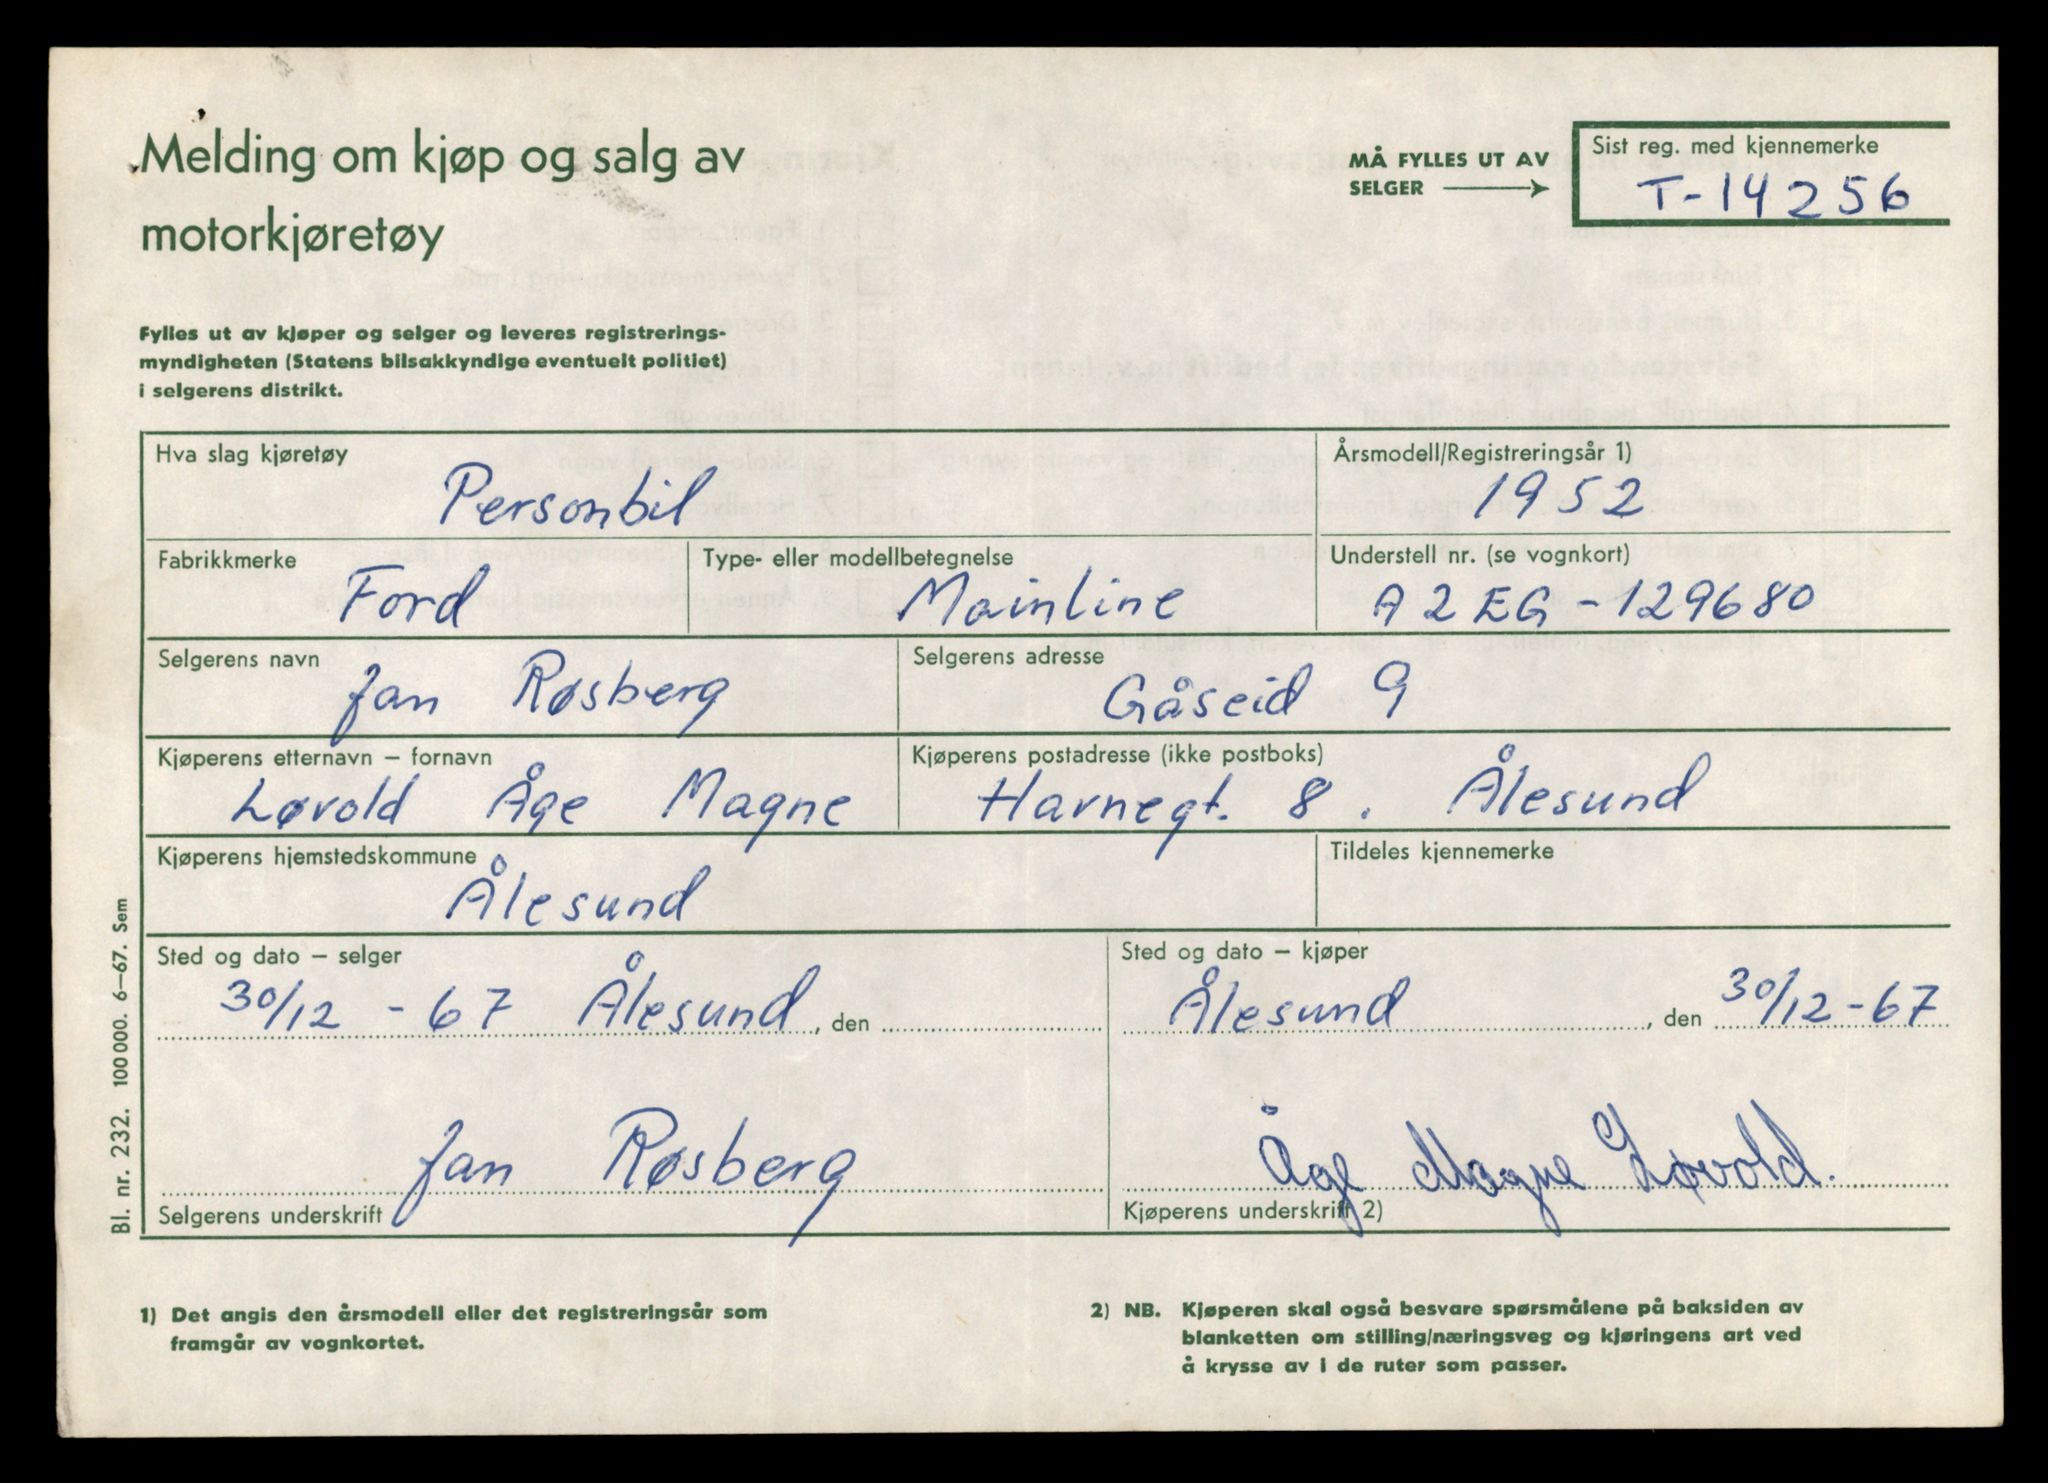 Melding om kjøp og salg av
motorkjøretøy
MÅ FYLLES UT AV
SELGER
Sist reg. med kjennemerke
T-14256
Fylles ut av kjøper og selger og leveres registrerings-
myndigheten (Statens bilsakkyndige eventuelt politiet)
i selgerens distrikt.
Hva slag kjøretøy
Personbil
Årsmodell/Registreringsår 1)
1952
Fabrikkmerke
Ford
Type- eller modellbetegnelse
Mainline
Understell nr. (se vognkort)
A2EG-129680
Selgerens navn
Jan Røsberg
Selgerens adresse
Gåseid 9
Kjøperens etternavn – fornavn
Løvold Åge Magne
Kjøperens postadresse (ikke postboks)
Havnegt. 8. Ålesund
Kjøperens hjemstedskommune
Ålesund
Tildeles kjennemerke
Sted og dato – selger
30/12 - 67 Ålesund, den
Sted og dato – kjøper
Ålesund, den 30/12-67
Jan Røsberg
Selgerens underskrift
Åge Magne Løvold.
Kjøperens underskrift 2)
Bl. nr. 232. 100 000. 6–67. Sem
1) Det angis den årsmodell eller det registreringsår som
framgår av vognkortet.
2) NB. Kjøperen skal også besvare spørsmålene på baksiden av
blanketten om stilling/næringsveg og kjøringens art ved
å krysse av i de ruter som passer.